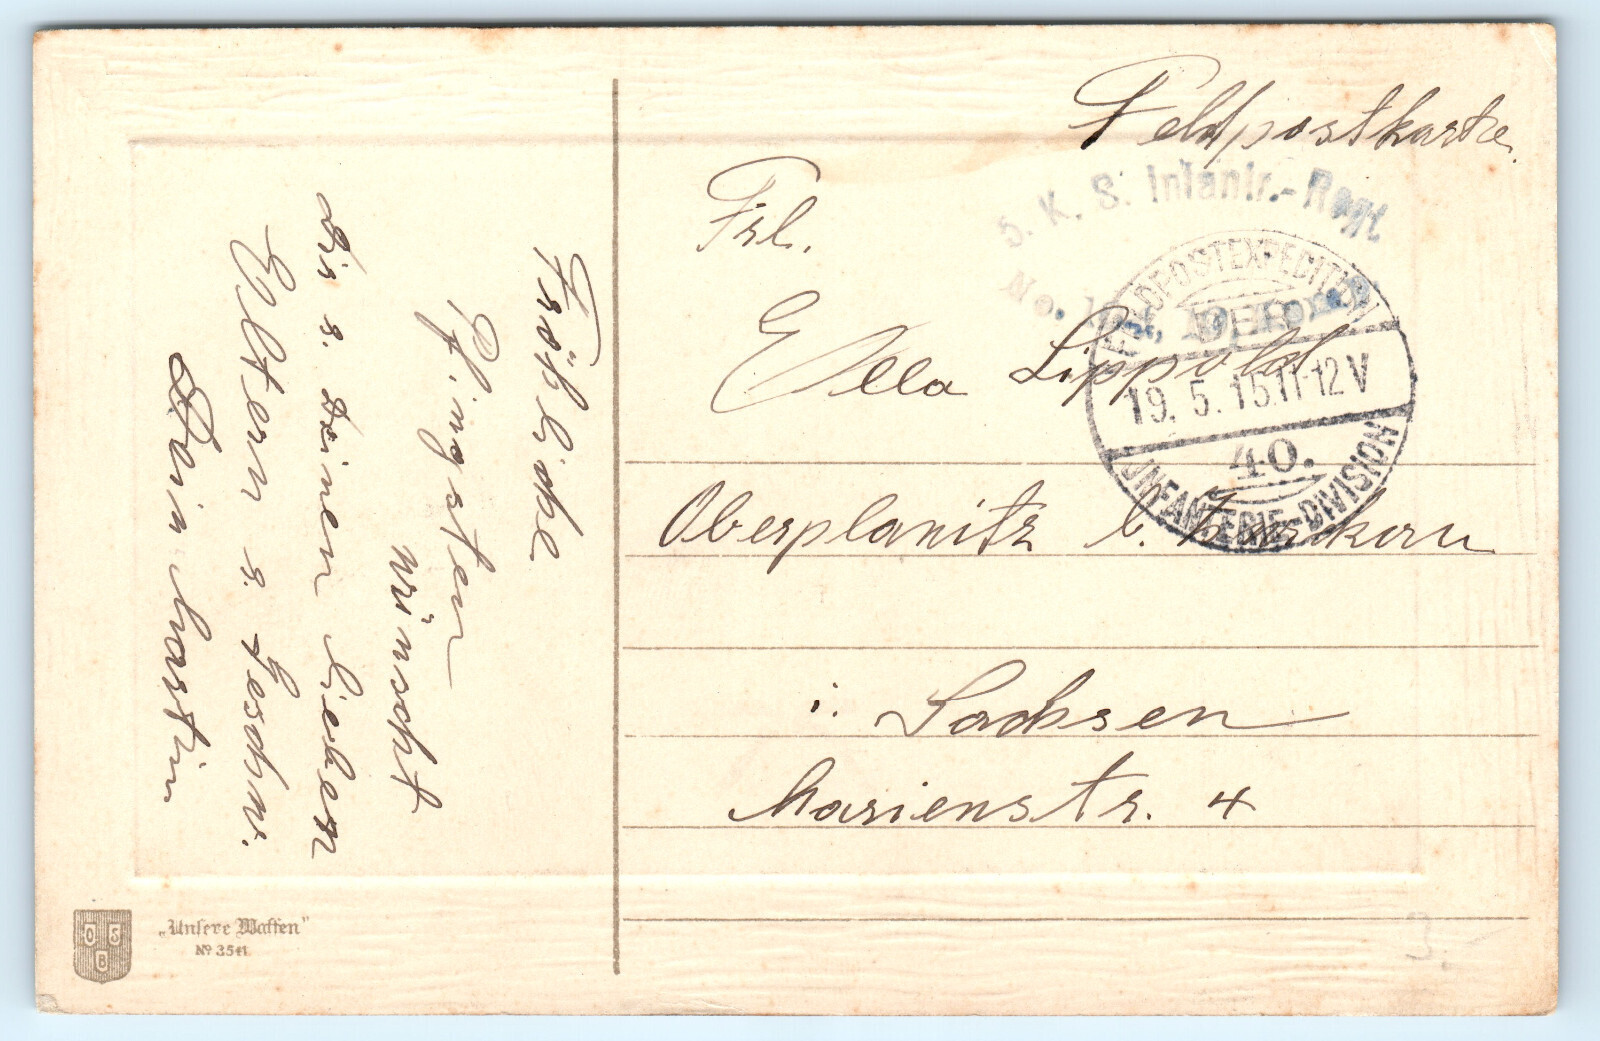 Feldpostkarte.
5. K. S. Infantr.-Regt
No. 104,
FELDPOSTEXPEDITION
DER
19. 5. 15. 11-12 V
40.
INFANTERIE-DIVISION
Frl.
Ella Lippold
Oberplanitz b. Zwickau
i. Sachsen
Marienstr. 4
Fröhliche
Pfingsten
wünscht
Dir u. Deinen lieben
Eltern u. Geschw.
Dein Martin
O S B
„Unsere Waffen"
No 3541
3.